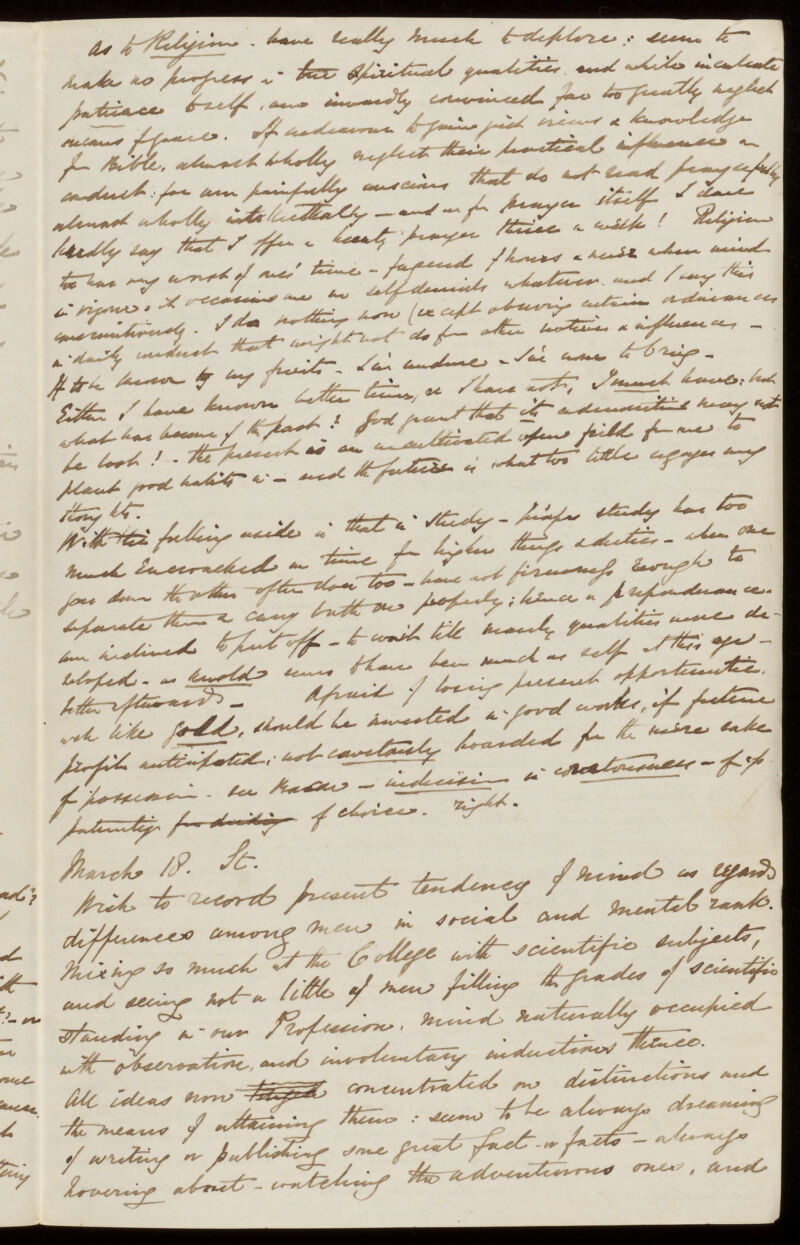 as to Religion - have really much to deplore : seem to
make no progress in the Spiritual qualities and while inculcate
patience to self, am inwardly convinced far too greatly neglect
means of grace. If endeavour to gain just views & knowledge
of Bible, almost wholly neglect their practical influence on
conduct : for am painfully conscious that do not read prayerfully
almost wholly intellectually - and as for prayer itself I dare
hardly say that I offer a hearty prayer thrice a week! Religion
too has my worst of time - fagend of hours & never when mind
in vigour. it occasions me no self denials whatever. and I say this
I do nothing now (except observing certain ordinances
in daily conduct that might not do for other motives & influences -
If to be known by my fruits -
Either I have known better times, or I have not, I must have : but
what has become of the past? God grant that its may not
be lost! - the present is an uncultivated open field for me to
plant good habits in - and the future is what too little engages my
thoughts.
With this falling aside is that in Study - study has too
much encroached on time for higher things & duties - when one
goes down the other often does too - have not firmness enough to
separate them & carry both on properly ; hence a preponderance.
am inclined to put off - to wait till manly qualities more de-
veloped - as Arnold seems to have been much as self at this age -
better afterwards - Afraid of losing present opportunities.
wh like gold, should be invested in good works, if future
profit anticipated ; not covetously hoarded for the mere sake
of possession. - indecision is covetousness - of op
portunities for deciding of choice. right.
March 18. St.
Wish to record present tendency of mind as regards
differences among men in social and mental rank.
Mixing so much at the College with scientific subjects,
and seeing not a little of men filling the grades of scientific
standing in our Profession. mind naturally occupied
with observation, and involuntary inductions thence.
All ideas now tinged concentrated on distinctions and
the means of attaining them : seem to be always dreaming
of writing or publishing some great fact - or facts - always
hovering about - watching the adventurous ones, and